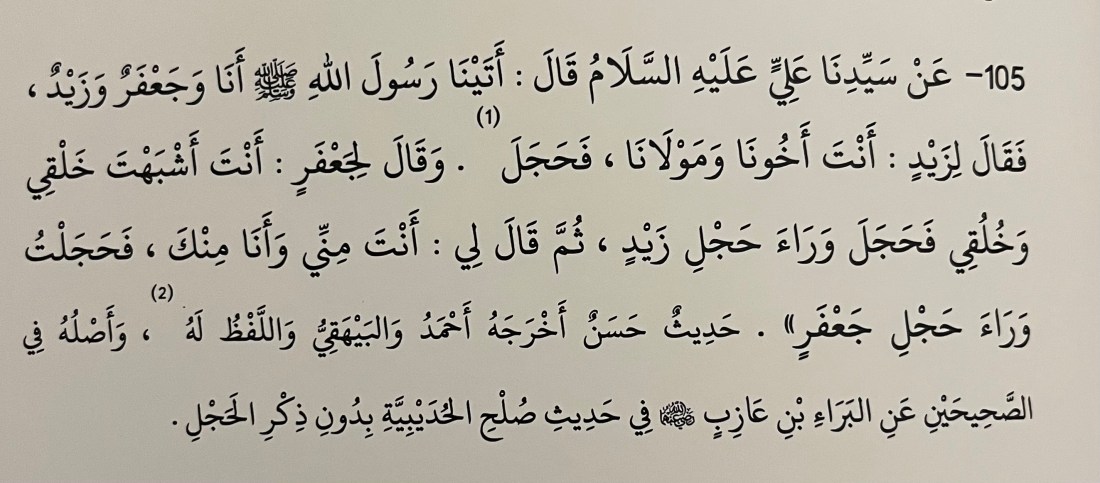 105- عَنْ سَيِّدِنَا عَلِيٍّ عَلَيْهِ السَّلَامُ قَالَ : أَتَيْنَا رَسُولَ اللهِ ﷺ أَنَا وَجَعْفَرٌ وَزَيْدٌ ،
فَقَالَ لِزَيْدٍ : أَنْتَ أَخُونَا وَمَوْلَانَا ، فَحَجَلَ (1) . وَقَالَ لِجَعْفَرٍ : أَنْتَ أَشْبَهْتَ خَلْقِي
وَخُلُقِي فَحَجَلَ وَرَاءَ حَجْلِ زَيْدٍ ، ثُمَّ قَالَ لِي : أَنْتَ مِنِّي وَأَنَا مِنْكَ ، فَحَجَلْتُ
وَرَاءَ حَجْلِ جَعْفَرٍ» . حَدِيثٌ حَسَنٌ أَخْرَجَهُ أَحْمَدُ وَالبَيْهَقِيُّ وَاللَّفْظُ لَهُ (2) ، وَأَصْلُهُ فِي
الصَّحِيحَيْنِ عَنِ البَرَاءِ بْنِ عَازِبٍ ﷺ فِي حَدِيثِ صُلْحِ الحُدَيْبِيَّةِ بِدُونِ ذِكْرِ الحَجْلِ .